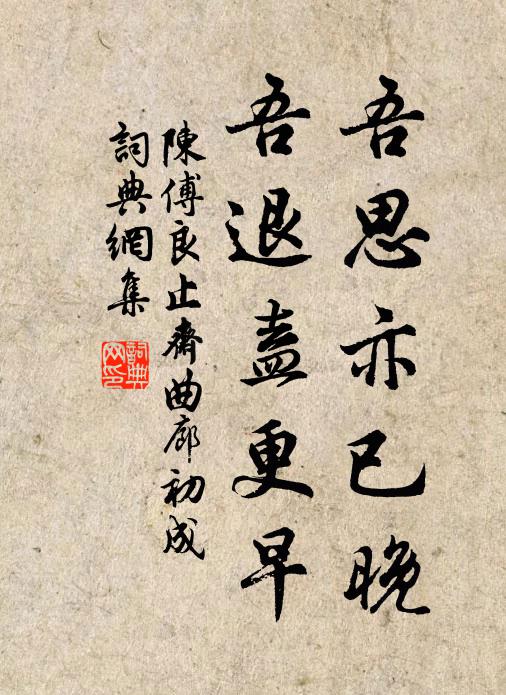 吾思亦已晚
吾退盍更早
陳傅良止齋曲廊初成
詞典網集
詞典网印